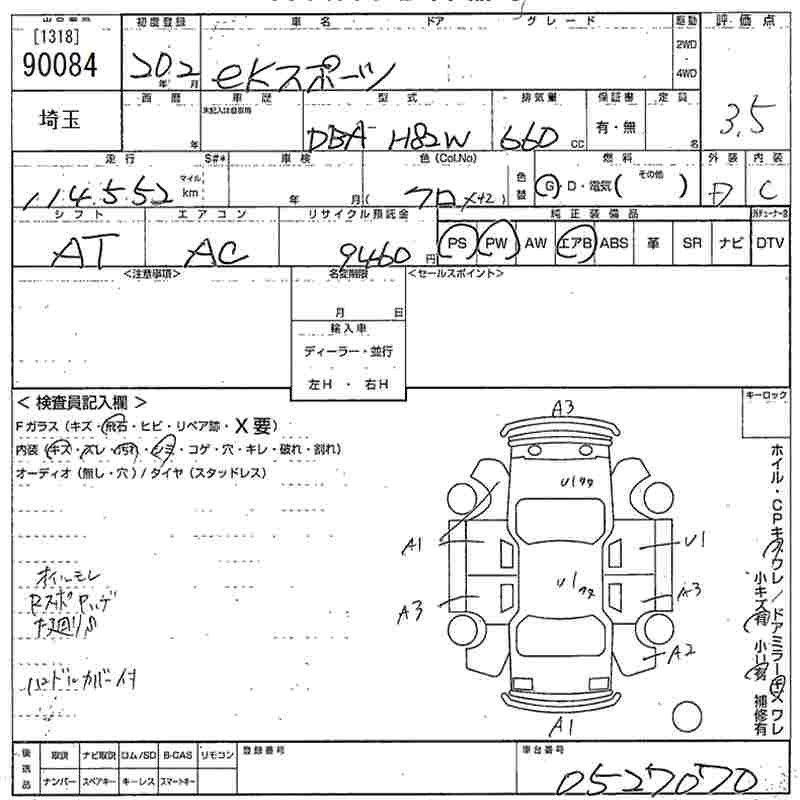 [1318]
90084
埼玉
初度登録
20.2
年 月
車名 ドア グレード
eKスポーツ
駆動
2WD
4WD
評価点
3.5
西暦
年
車歴
未記入は自家用
型式
DBA- H82W
排気量
660 cc
保証書
有・無
定員
名
走行
114,552
マイル
km
S#*
車検
年 月
色(Col.No)
クロ (X42)
色替
燃料
G・D・電気( その他 )
外装
D
内装
C
シフト
AT
エアコン
AC
リサイクル預託金
9460 円
純正装備品
PS PW AW エアB ABS 革 SR ナビ DTV
<注意事項>
名変期限
月 日
輸入車
ディーラー・並行
左H ・ 右H
<セールスポイント>
< 検査員記入欄 >
Fガラス(キズ・飛石・ヒビ・リペア跡・X要)
内装(キズ・スレ・汚れ・シミ・コゲ・穴・キレ・破れ・割れ)
オーディオ(無し・穴)/タイヤ(スタッドレス)
オイルモレ
ハンドルカバー付
キーロック
A3
U1
A1
U1
U1
A3
A3
A2
A1
ホイル・CPキズワレ/ドアミラーキズワレ
小キズ有 小凹有 補修有
後送品
取説 ナビ取説 ロム/SD B-CAS リモコン
ナンバー スペアキー キーレス スマートキー
登録番号
車台番号
0527070